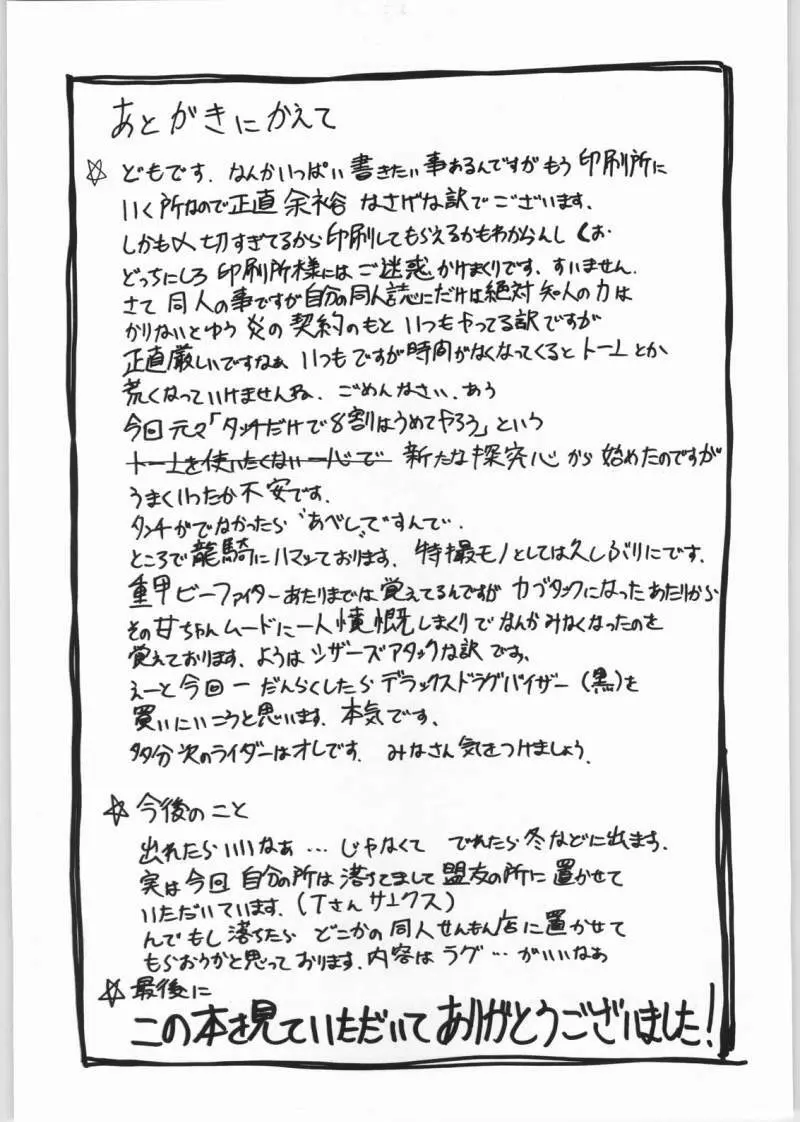 あとがきにかえて
☆ どもです、なんかいっぱい書きたい事あるんですがもう印刷所に
いく所なので正直余裕なさげな訳でございます、
しかも〆切すぎてるから印刷してもらえるかもわからんし くお、
どっちにしろ印刷所様にはご迷惑かけまくりです、すいません、
さて同人の事ですが自分の同人誌にだけは絶対知人の力は
かりないとゆう炎の契約のもといつもやってる訳ですが
正直厳しいですなぁ いつもですが時間がなくなってくるとトーンとか
荒くなっていけませんね、ごめんなさい、あう
今回元々「タッチだけで8割はうめてやろう」という
トーンを使いたくない一心で 新たな探究心から始めたのですが
うまくいったか不安です、
タッチがでなかったら“あべし”ですんで、
ところで龍騎にハマッております、特撮モノとしては久しぶりにです、
重甲ビーファイターあたりまでは覚えてるんですがカブタックになったあたりから
その甘ちゃんムードに一人憤慨しまくりでなんかみなくなったのを
覚えております、ようはシザーズアタックな訳ですよ、
えーと今回一だんらくしたらデラックスドラグバイザー(黒)を
買いにいこうと思います、本気です、
多分次のライダーはオレです、みなさん気をつけましょう、
☆ 今後のこと
出れたらいいなぁ…じゃなくて でれたら冬などに出ます、
実は今回自分の所は落ちてまして盟友の所に置かせて
いただいています、(Tさんサークス)
んでもし落ちたらどこかの同人せんもん店に置かせて
もらおうかと思っております、内容はラグ…がいいなあ
☆ 最後に
この本を見ていただいてありがとうございました!